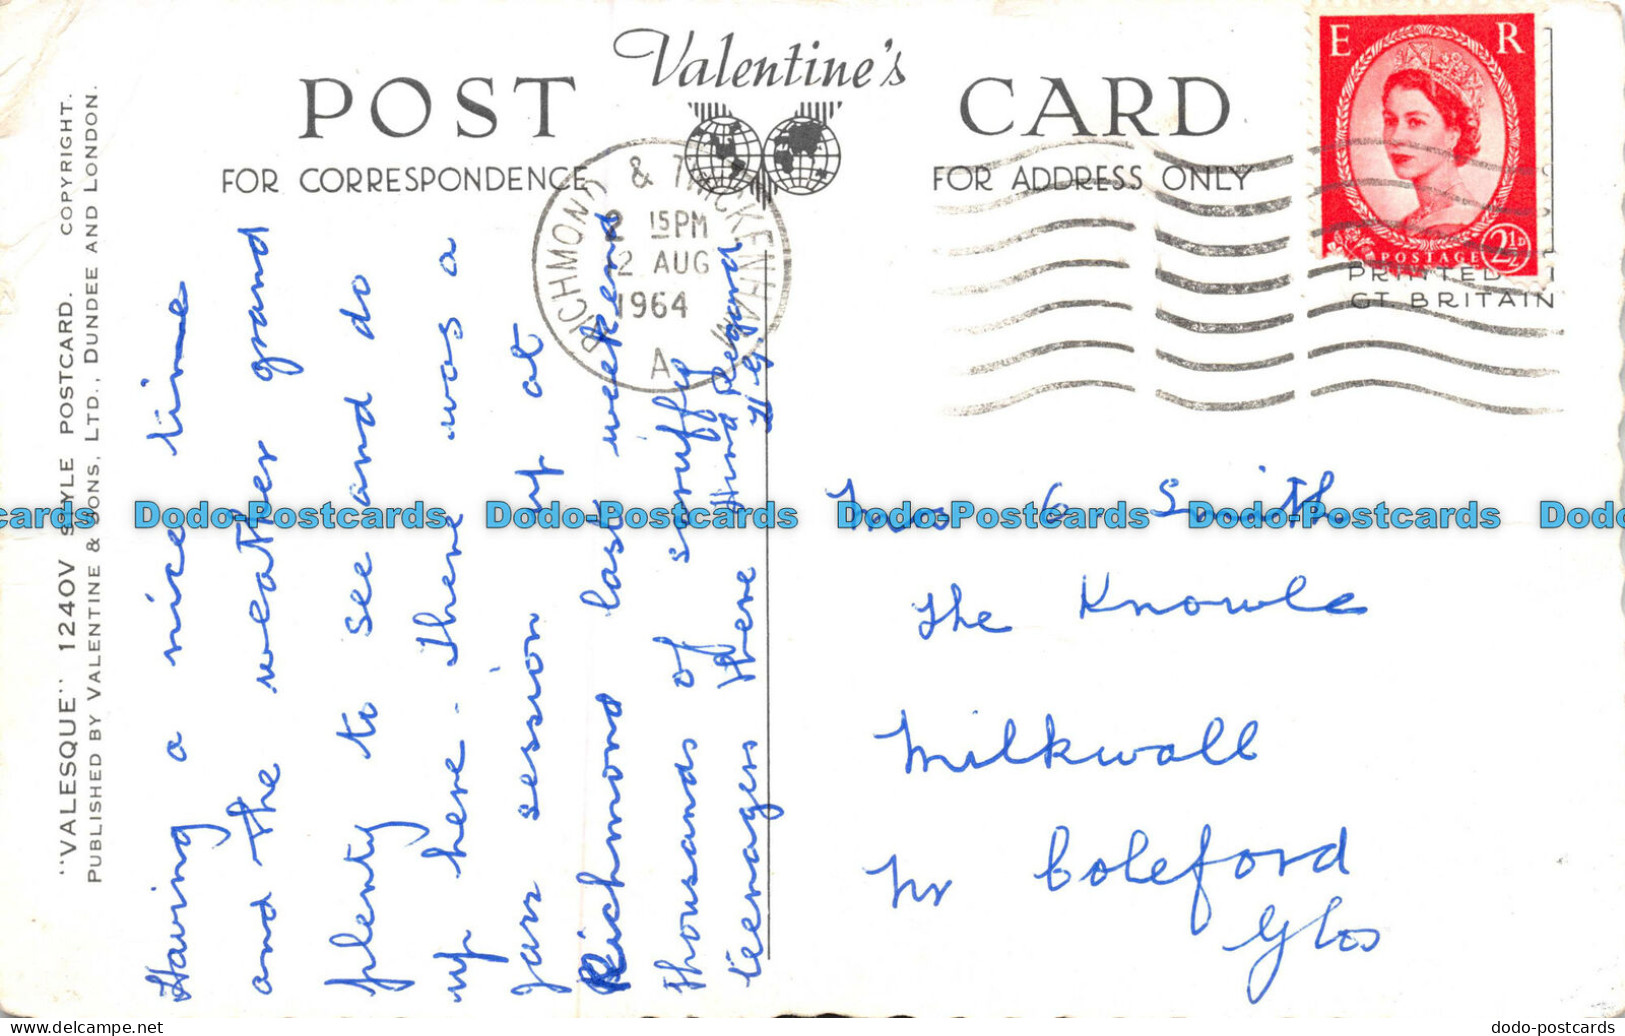 Valentine's
POST CARD
FOR CORRESPONDENCE
FOR ADDRESS ONLY
"VALESQUE" 1240V STYLE POSTCARD. COPYRIGHT.
PUBLISHED BY VALENTINE & SONS, LTD., DUNDEE AND LONDON.
RICHMOND & TWICKENHAM
2 15 PM
2 AUG
1964
A
E R
POSTAGE 2½D
PRINTED I
GT BRITAIN
Having a nice time
and the weather grand
plenty to see and do
up here. There was a
jars session up at
Richmond last weekend
thousands of scruffy
teenagers here Kind Regard
Mrs G Smith
The Knowle
Milkwall
Nr Coleford
Glos
cards Dodo-Postcards Dodo-Postcards Dodo-Postcards Dodo-Postcards Dodo
dodo-postcards